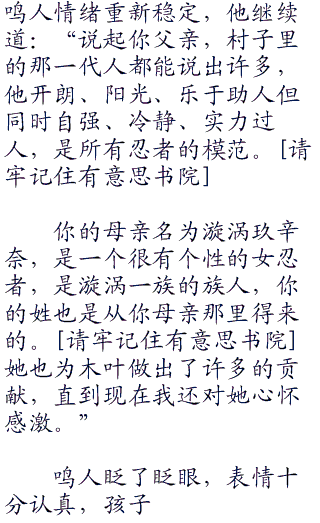 鸣人情绪重新稳定，他继续
道：“说起你父亲，村子里
的那一代人都能说出许多，
他开朗、阳光、乐于助人但
同时自强、冷静、实力过
人，是所有忍者的模范。[请
牢记住有意思书院]
你的母亲名为漩涡玖辛
奈，是一个很有个性的女忍
者，是漩涡一族的族人，你
的姓也是从你母亲那里得来
的。[请牢记住有意思书院]
她也为木叶做出了许多的贡
献，直到现在我还对她心怀
感激。”
鸣人眨了眨眼，表情十
分认真，孩子